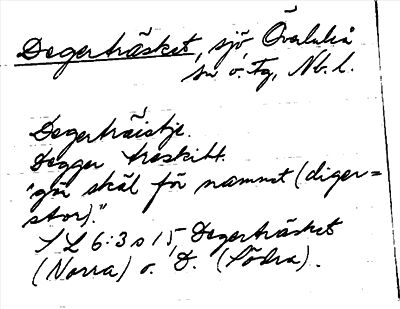 Degerträsket, sjö, Överluleå
sn o. tg, Nb. l.
Degerträistje.
Degger treskitt.
"gör skäl för namnet (diger=
stor)."
SL 6:3 s 15, Degerträsket
(Norra) o. D. (Södra).